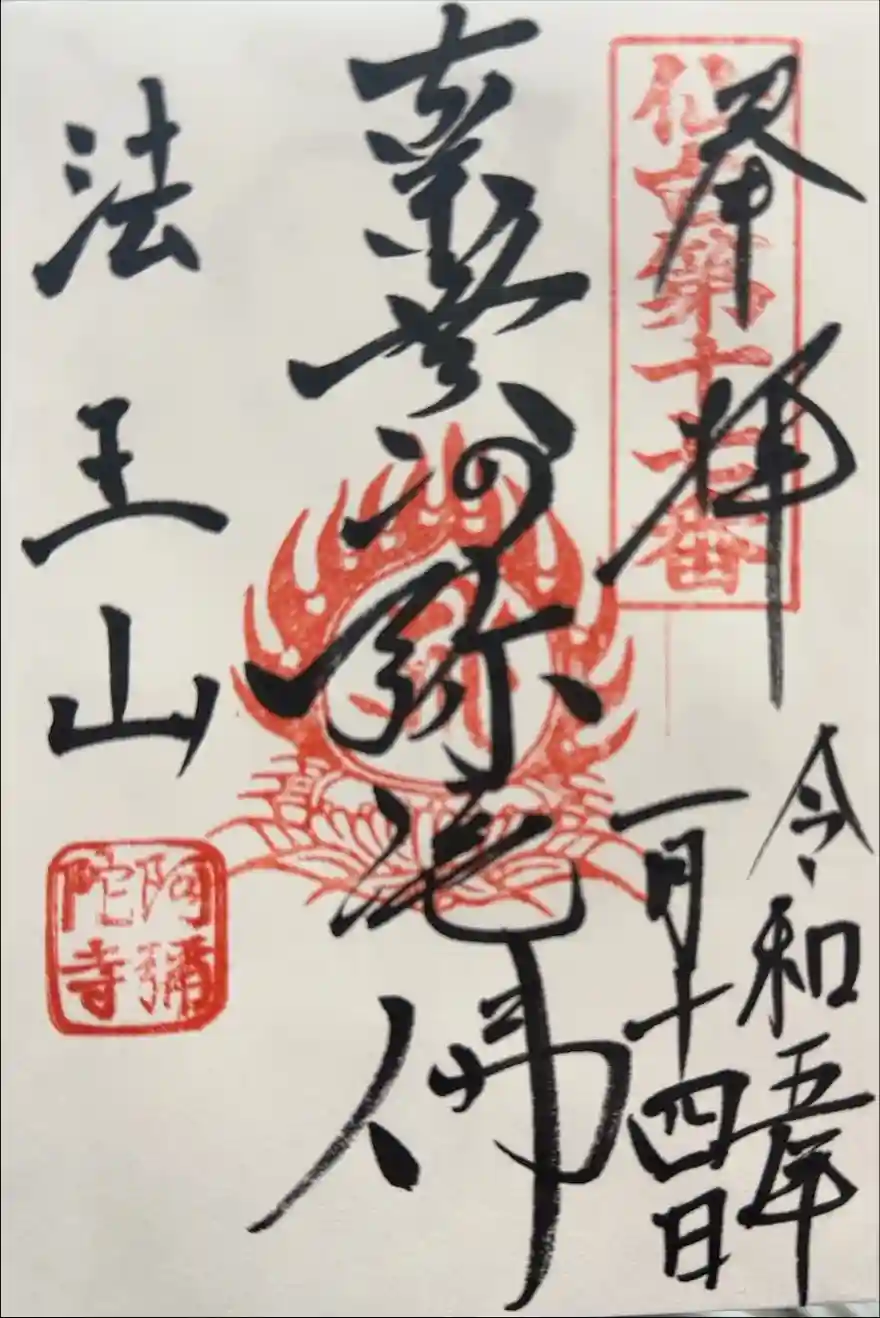 奉拝
仙第十七番
令和五年
一月十四日
南無阿弥陀佛
法王山
阿彌
陀寺